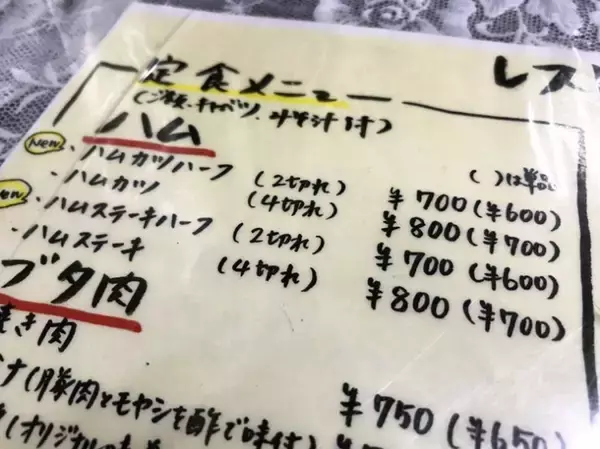 レス
定食メニュー
(ご飯、キャベツ、みそ汁付)
ハム
( )は単品
New ・ハムカツハーフ (2切れ) ¥700(¥600)
・ハムカツ (4切れ) ¥800(¥700)
New ・ハムステーキハーフ (2切れ) ¥700(¥600)
・ハムステーキ (4切れ) ¥800(¥700)
ブタ肉
焼き肉 ¥750(¥650)
ナ(豚肉とモヤシを酢で味付)
(オリジナル